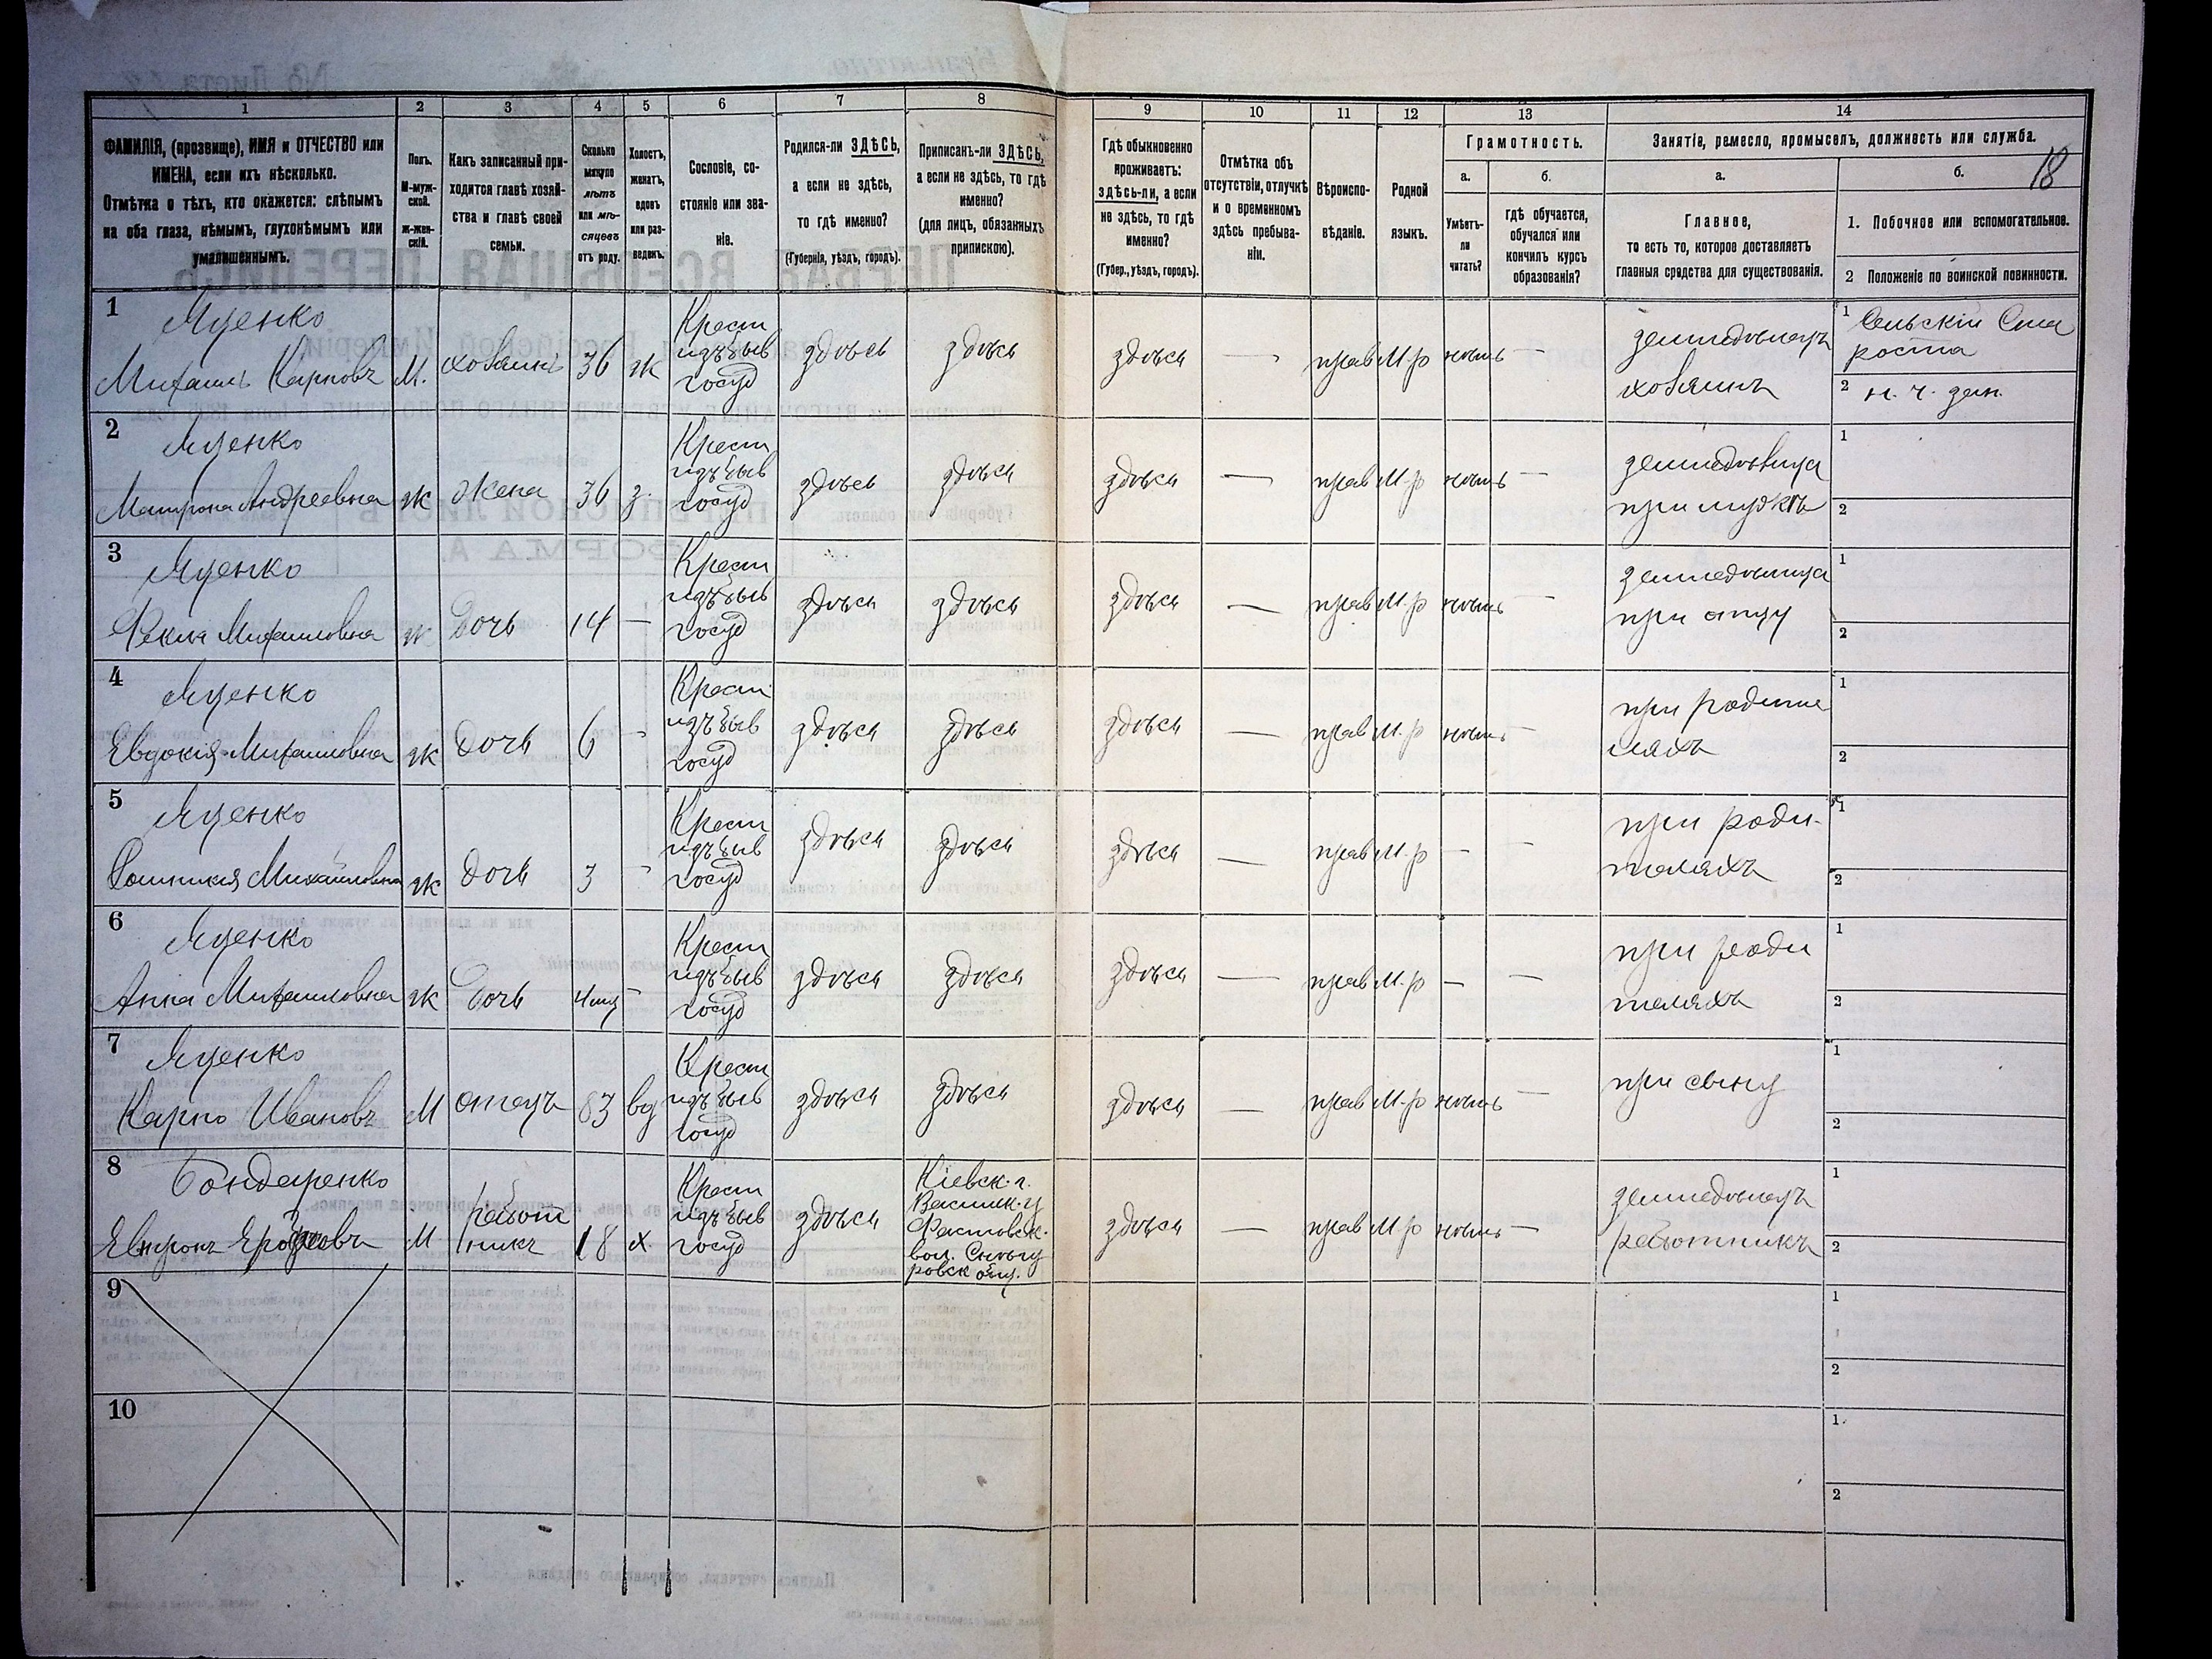 18
1 2 3 4 5 6 7 8 9 10 11 12 13 14
ФАМИЛІЯ, (прозвище), ИМЯ и ОТЧЕСТВО или
ИМЕНА, если ихъ нѣсколько.
Отмѣтка о тѣхъ, кто окажется: слѣпымъ
на оба глаза, нѣмымъ, глухонѣмымъ или
умалишеннымъ.
Полъ.
М-муж-
ской.
Ж-жен-
скій.
Какъ записанный при-
ходится главѣ хозяй-
ства и главѣ своей
семьи.
Сколько
минуло
лѣтъ
или мѣ-
сяцевъ
отъ роду.
Холостъ,
женатъ,
вдовъ
или раз-
веденъ.
Сословіе, со-
стояніе или зва-
ніе.
Родился-ли ЗДѢСЬ,
а если не здѣсь,
то гдѣ именно?
(Губернія, уѣздъ, городъ).
Приписанъ-ли ЗДѢСЬ,
а если не здѣсь, то гдѣ
именно?
(для лицъ, обязанныхъ
припискою).
Гдѣ обыкновенно
проживаетъ:
здѣсь-ли, а если
не здѣсь, то гдѣ
именно?
(Губер., уѣздъ, городъ).
Отмѣтка объ
отсутствіи, отлучкѣ
и о временномъ
здѣсь пребыва-
ніи.
Вѣроиспо-
вѣданіе.
Родной
языкъ.
Грамотность.
а.
Умѣетъ-
ли
читать?
б.
гдѣ обучается,
обучался или
кончилъ курсъ
образованія?
Занятіе, ремесло, промыселъ, должность или служба.
а.
Главное,
то есть то, которое доставляетъ
главныя средства для существованія.
б.
1. Побочное или вспомогательное.
2 Положеніе по воинской повинности.
1 Яценко
Михаилъ Карповъ
М.
хозяинъ
36
ж
Крест
изъ быв
госуд
здѣсь
здѣсь
здѣсь
—
прав
М-р
нѣтъ
—
земледѣлецъ
хозяинъ
1 Сельскій Ста
роста
2 н. ч. зап.
2 Яценко
Матрона Андреевна
ж
Жена
36
з.
Крест
изъ быв
госуд
здѣсь
здѣсь
здѣсь
—
прав
М-р
нѣтъ
—
земледѣлица
при мужѣ
1
2
3 Яценко
Фекла Михаиловна
ж
Дочь
14
—
Крест
изъ быв
госуд
здѣсь
здѣсь
здѣсь
—
прав
М-р
нѣтъ
—
земледѣлица
при отцу
1
2
4 Яценко
Евдокія Михаиловна
ж
дочь
6
-
Крест
изъ быв
госуд
здѣсь
здѣсь
здѣсь
—
прав
М-р
нѣтъ
—
при родите
ляхъ
1
2
5 Яценко
Михайловна
ж
дочь
3
-
Крест
изъ быв
госуд
здѣсь
здѣсь
здѣсь
—
прав
М-р
—
—
при роди-
теляхъ
1
2
6 Яценко
Анна Михаиловна
ж
дочь
4 мц
-
Крест
изъ быв
госуд
здѣсь
здѣсь
здѣсь
—
прав
М-р
—
—
при роди
теляхъ
1
2
7 Яценко
Карпо Ивановъ
М
отецъ
83
вд
Крест
изъ быв
госуд
здѣсь
здѣсь
здѣсь
—
прав
М-р
нѣтъ
—
при сыну
1
2
8 Бондаренко
М
работ
никъ
18
х
Крест
изъ быв
госуд
здѣсь
Кіевск. г.
Васильк. у
Фастовск.
вол. Снѣгу
ровск общ.
здѣсь
—
прав
М-р
нѣтъ
—
земледѣлецъ
работникъ
1
2
9
1
2
10
1.
2